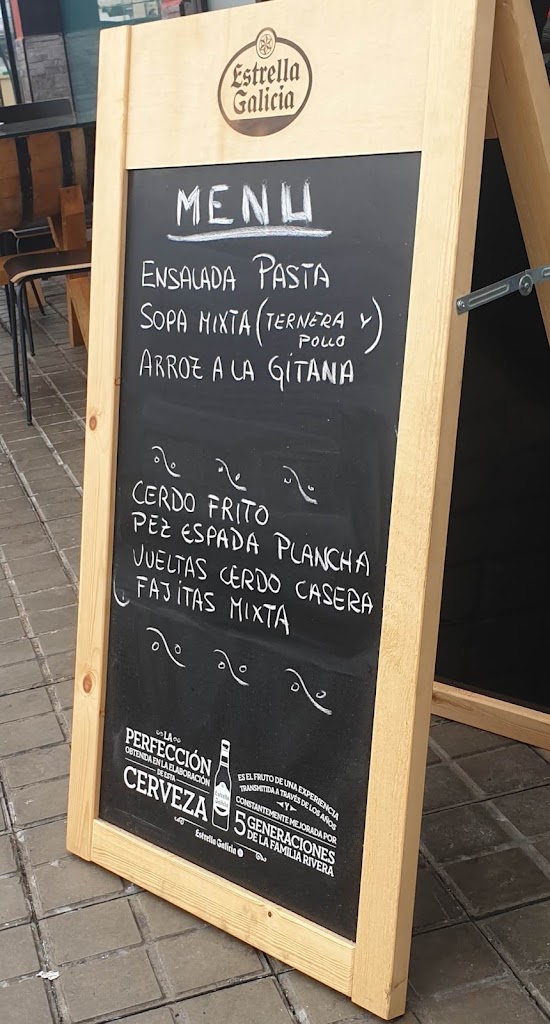 Estrella
Galicia
MENU
ENSALADA PASTA
SOPA MIXTA (TERNERA Y
POLLO)
ARROZ A LA GITANA
CERDO FRITO
PEZ ESPADA PLANCHA
VUELTAS CERDO CASERA
FAJITAS MIXTA
LA
PERFECCIÓN
OBTENIDA EN LA ELABORACIÓN
DE ESTA
CERVEZA
Estrella Galicia
ES EL FRUTO DE UNA EXPERIENCIA
TRANSMITIDA A TRAVÉS DE LOS AÑOS
Y
CONSTANTEMENTE MEJORADA POR
5 GENERACIONES
DE LA FAMILIA RIVERA